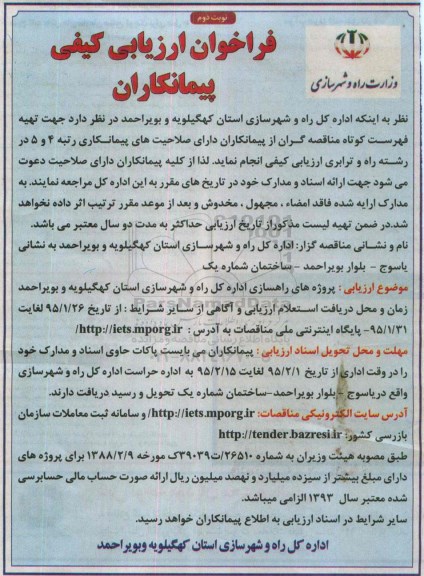 نوبت دوم
فراخوان ارزیابی کیفی
پیمانکاران
وزارت راه و شهرسازی
نظر به اینکه اداره کل راه و شهرسازی استان کهگیلویه و بویراحمد در نظر دارد جهت تهیه
فهرست کوتاه مناقصه گران از پیمانکاران دارای صلاحیت های پیمانکاری رتبه ۴ و ۵ در
رشته راه و ترابری ارزیابی کیفی انجام نماید. لذا از کلیه پیمانکاران دارای صلاحیت دعوت
می شود جهت ارائه اسناد و مدارک خود در تاریخ های مقرر به این اداره کل مراجعه نمایند. به
مدارک ارایه شده فاقد امضاء ، مجهول ، مخدوش و بعد از موعد مقرر ترتیب اثر داده نخواهد
شد.در ضمن تهیه لیست مذکوراز تاریخ ارزیابی حداکثر به مدت دو سال معتبر می باشد.
نام و نشانی مناقصه گزار: اداره کل راه و شهرسازی استان کهگیلویه و بویراحمد به نشانی
یاسوج - بلوار بویراحمد -ساختمان شماره یک
موضوع ارزیابی : پروژه های راهسازی اداره کل راه و شهرسازی استان کهگیلویه و بویراحمد
زمان و محل دریافت استعلام ارزیابی و آگاهی از سایر شرایط : از تاریخ ۹۵/۱/۲۶ لغایت
۹۵/۱/۳۱- پایگاه اینترنتی ملی مناقصات به آدرس : http://iets.mporg.ir/
مهلت و محل تحویل اسناد ارزیابی : پیمانکاران می بایست پاکات حاوی اسناد و مدارک خود
را در وقت اداری از تاریخ ۹۵/۲/۱ لغایت ۹۵/۲/۱۵ به اداره حراست اداره کل راه و شهرسازی
واقع دریاسوج -بلوار بویراحمد-ساختمان شماره یک تحویل و رسید دریافت دارند.
آدرس سایت الکترونیکی مناقصات: http://iets.mporg.ir/ و سامانه ثبت معاملات سازمان
بازرسی کشور: http://tender.bazresi.ir
طبق مصوبه هیئت وزیران به شماره ۲۶۵۱۰/ت۳۹۰۳۹ک مورخه ۱۳۸۸/۲/۹ برای پروژه های
دارای مبلغ بیشتر از سیزده میلیارد و نهصد میلیون ریال ارائه صورت حساب مالی حسابرسی
شده معتبر سال ۱۳۹۳ الزامی میباشد.
سایر شرایط در اسناد ارزیابی به اطلاع پیمانکاران خواهد رسید.
اداره کل راه و شهرسازی استان کهگیلویه وبویراحمد